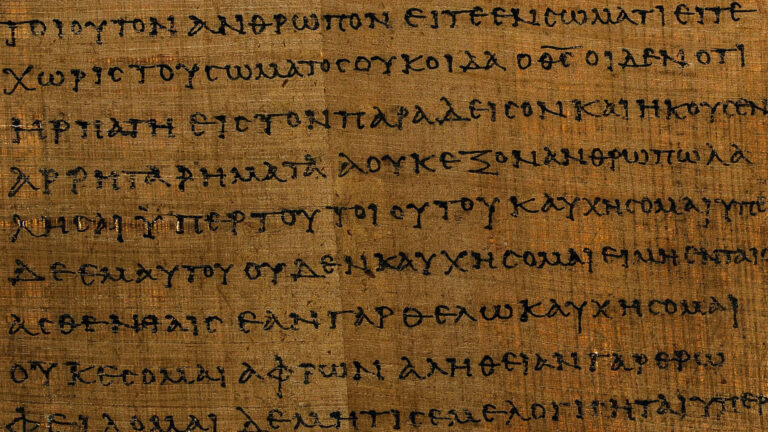 ΤΟΙΟΥΤΟΝ ΑΝΘΡΩΠΟΝ ΕΙΤΕΕΝϹΩΜΑΤΙ ΕΙΤΕ
ΧΩΡΙϹ ΤΟΥϹΩΜΑΤΟϹ ΟΥΚΟΙΔΑ ΟΘ̅Ϲ̅ ΟΙΔΕΝ ΟΤΙ
ΗΡΠΑΓΗ ΕΙϹΤΟΝΠΑΡΑΔΕΙϹΟΝΚΑΙΗΚΟΥϹΕΝ
ΑΡΡΗΤΑΡΗΜΑΤΑ ΑΟΥΚΕΞΟΝΑΝΘΡΩΠΩΛΑ
ΛΗϹΑΙ ΫΠΕΡΤΟΥΤΟΙΟΥΤΟΥ ΚΑΥΧΗϹΟΜΑΙΥΠΕ
ΔΕΕΜΑΥΤΟΥ ΟΥΔΕΝΚΑΥΧΗϹΟΜΑΙΕΙΜΗΕΝΤΑΙϹ
ΑϹΘΕΝΗΑΙϹ ΕΑΝΓΑΡΘΕΛΩΚΑΥΧΗϹΟΜΑΙ
ΟΥΚΕϹΟΜΑΙ ΑΦΡΩΝ ΑΛΗΘΕΙΑΝΓΑΡΕΡΩ
ΦΕΙΔΟΜΑΙ ΔΕΜΗΤΙϹΕΜΕΛΟΓΙϹΗΤΑΙΥΠΕΡ